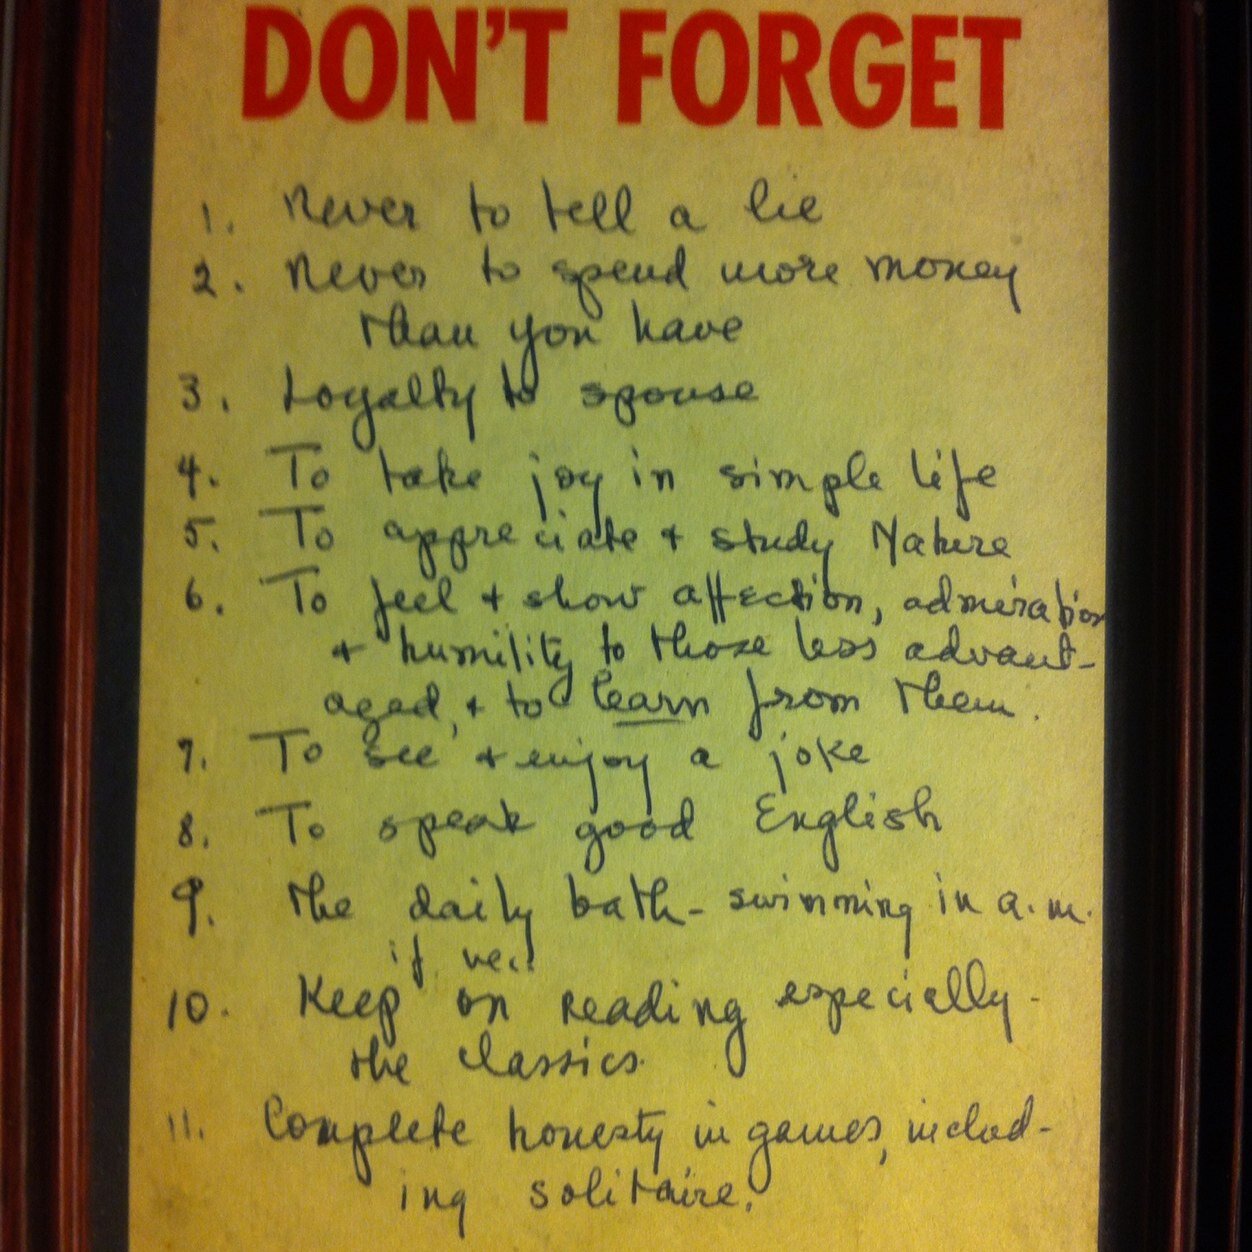 DON'T FORGET
1. Never to tell a lie
2. Never to spend more money
than you have
3. Loyalty to spouse
4. To take joy in simple life
5. To appreciate + study Nature
6. To feel + show affection, admiration
+ humility to those less advant-
aged, + to learn from them.
7. To see + enjoy a joke
8. To speak good English
9. The daily bath - swimming in a.m.
if
10. Keep on reading especially -
the classics.
11. Complete honesty in games, includ-
ing solitaire.